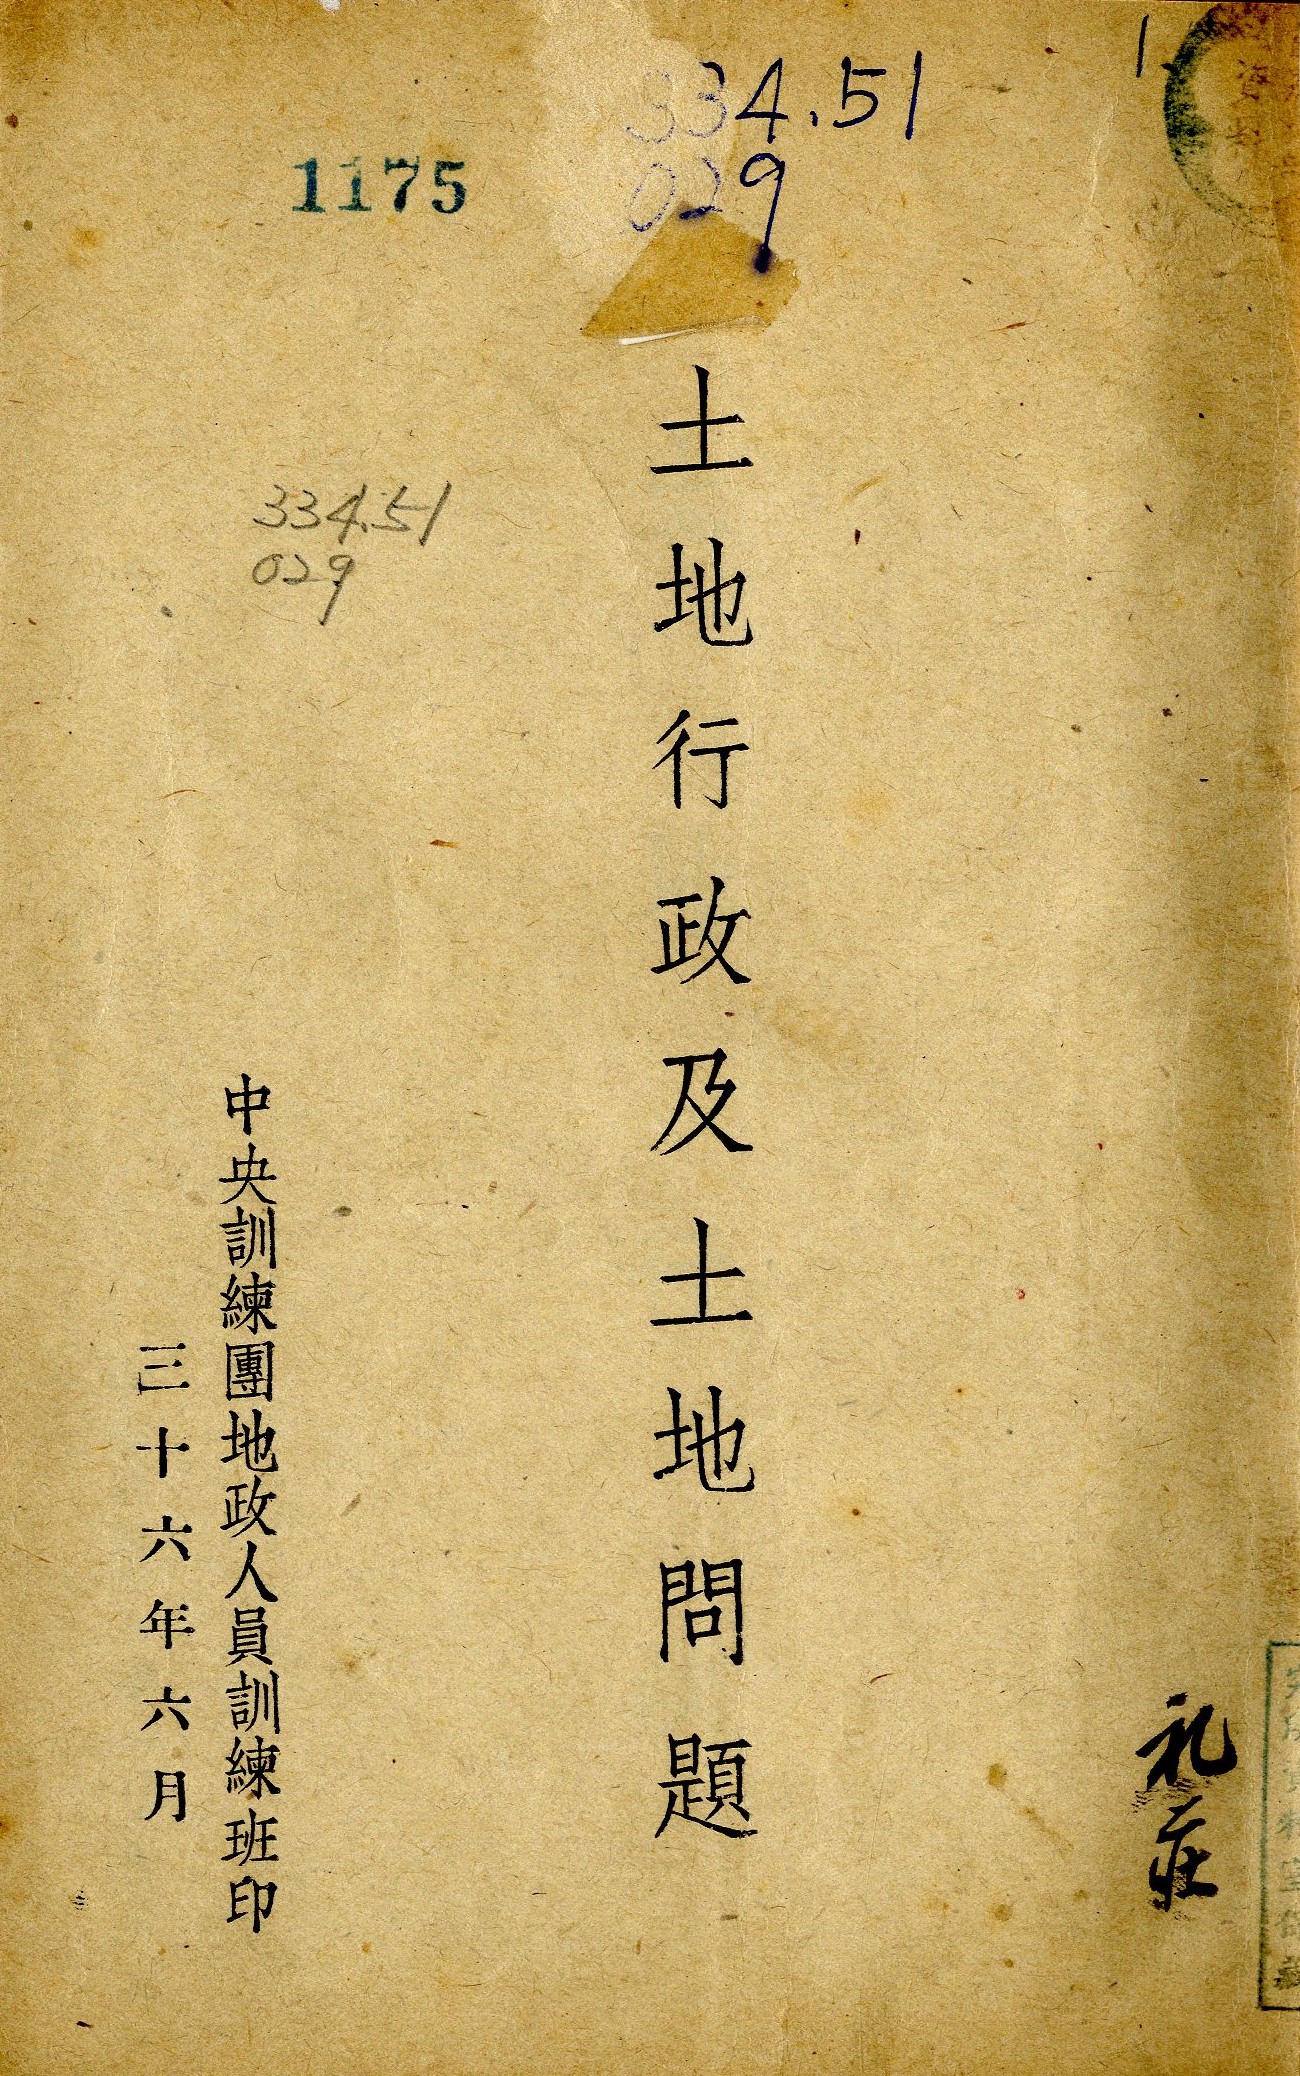 1
334.51
029
1175
土地行政及土地問題
334.51
029
中央訓練團地政人員訓練班印
三十六年六月
礼莊